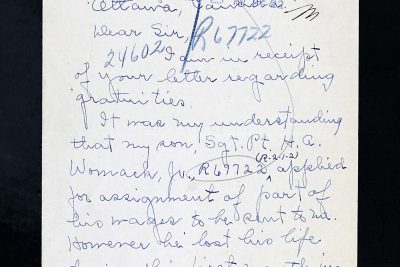 Ottawa, Can.
Dear Sir, R67722
24602 I am in receipt
of your letter regarding
gratuities.
It was my understanding
that my son, Sgt. Pt. H. A.
(R-212)
Womack, Jr., R69722 applied
for assignment of part of
his wages to be sent to me.
However he lost his life